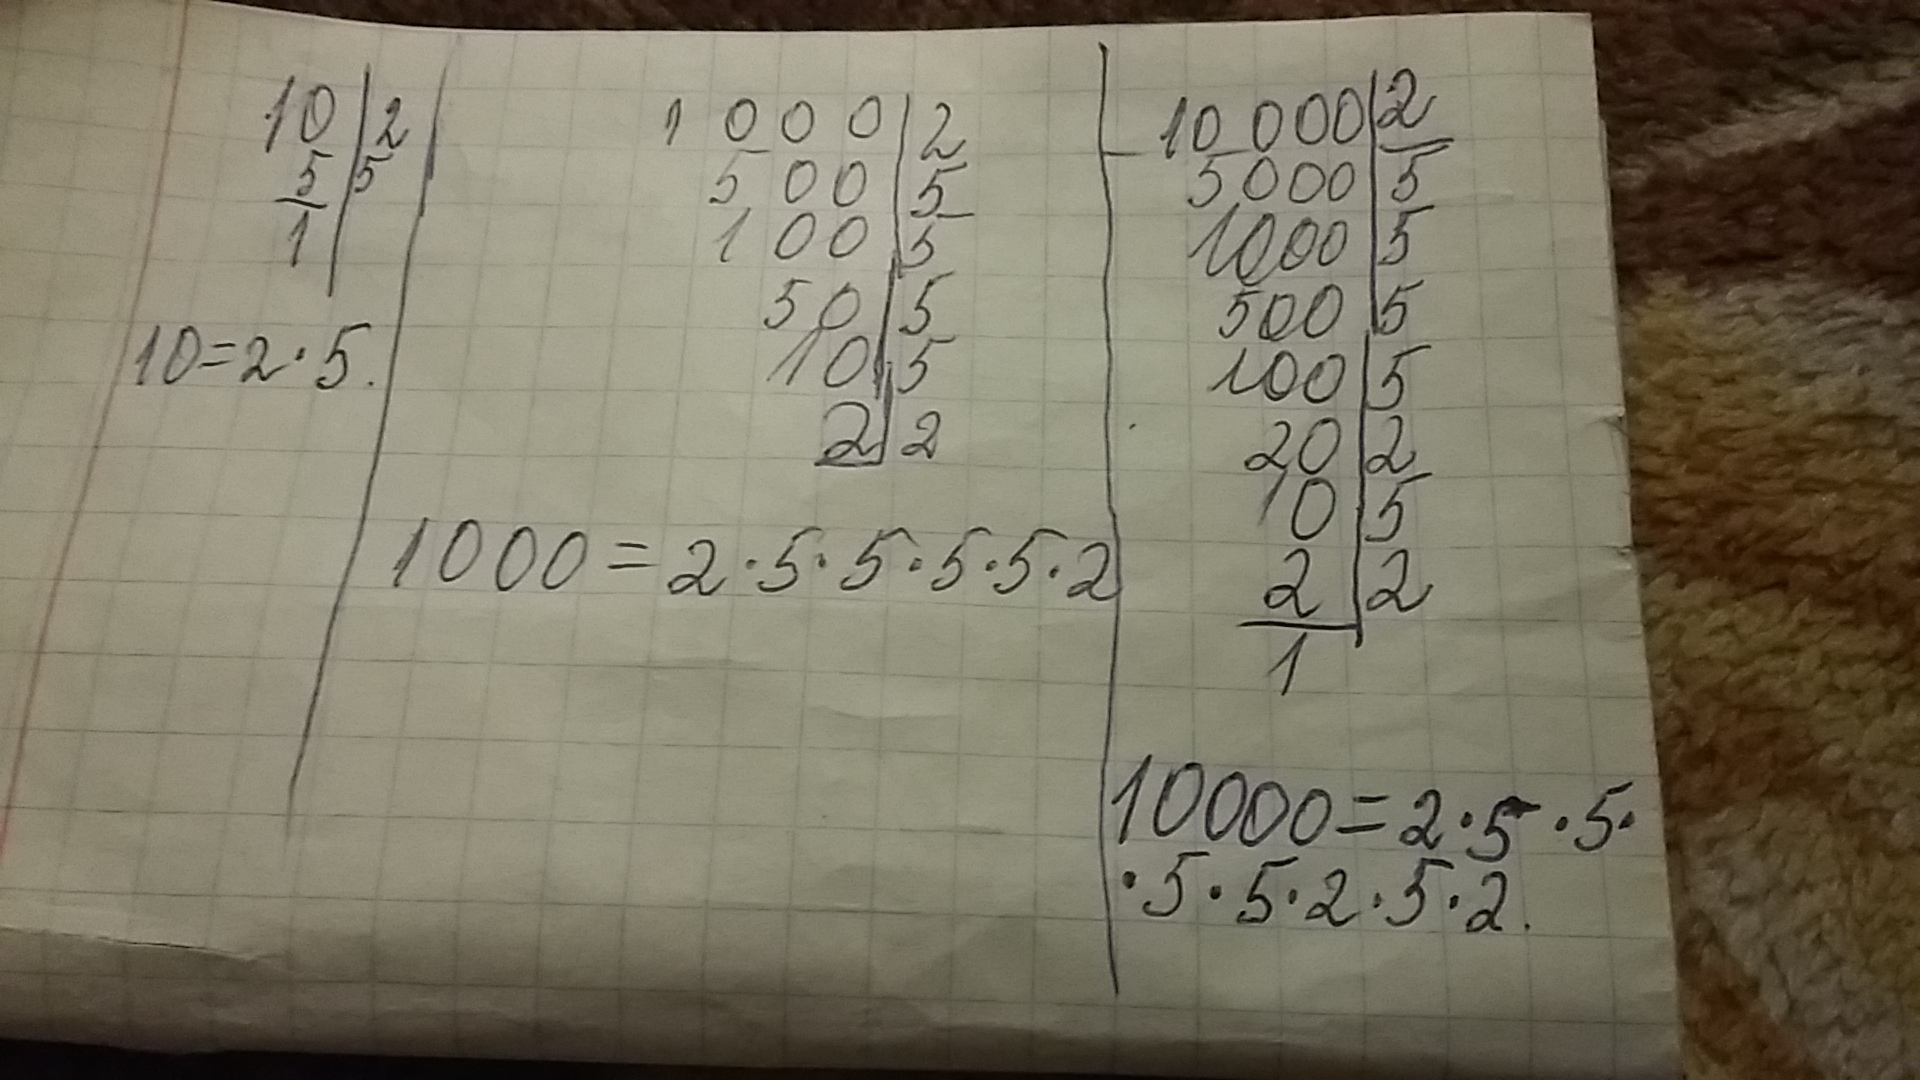 10 | 2
5 | 5
1
10=2·5.
1000 | 2
500 | 5
100 | 5
50 | 5
10 | 5
2 | 2
1000=2·5·5·5·5·2
10000 | 2
5000 | 5
1000 | 5
500 | 5
100 | 5
20 | 2
10 | 5
2 | 2
1
10000=2·5·5·
·5·5·2·5·2.